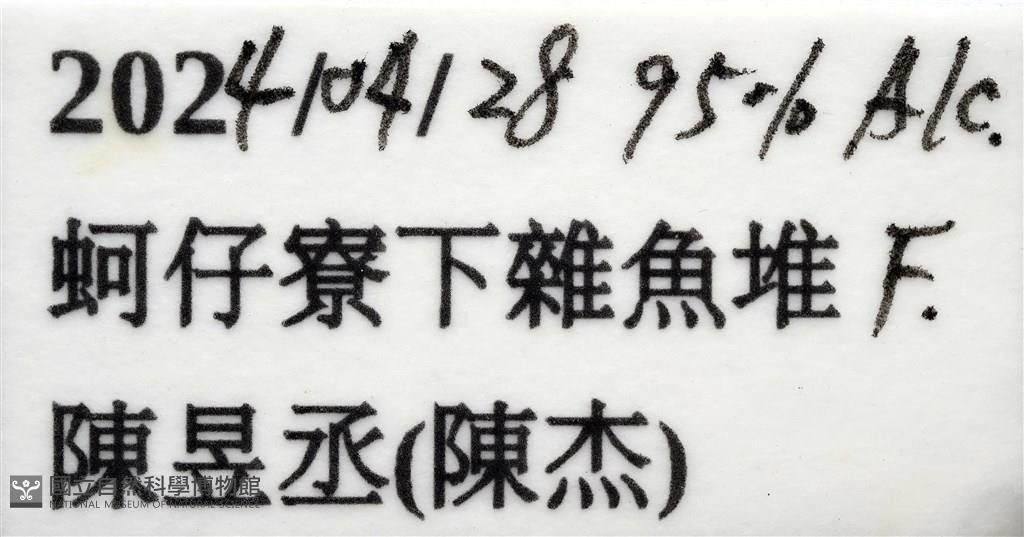 2024/04/28 95% Alc.
蚵仔寮下雜魚堆 F.
陳昱丞(陳杰)
國立自然科學博物館
NATIONAL MUSEUM OF NATURAL SCIENCE